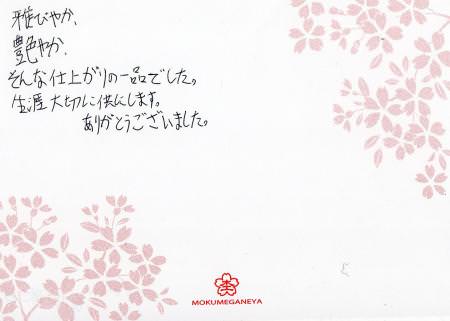 雅びやか、
艶やか、
そんな仕上がりの一品でした。
生涯大切に供にします。
ありがとうございました。
MOKUMEGANEYA